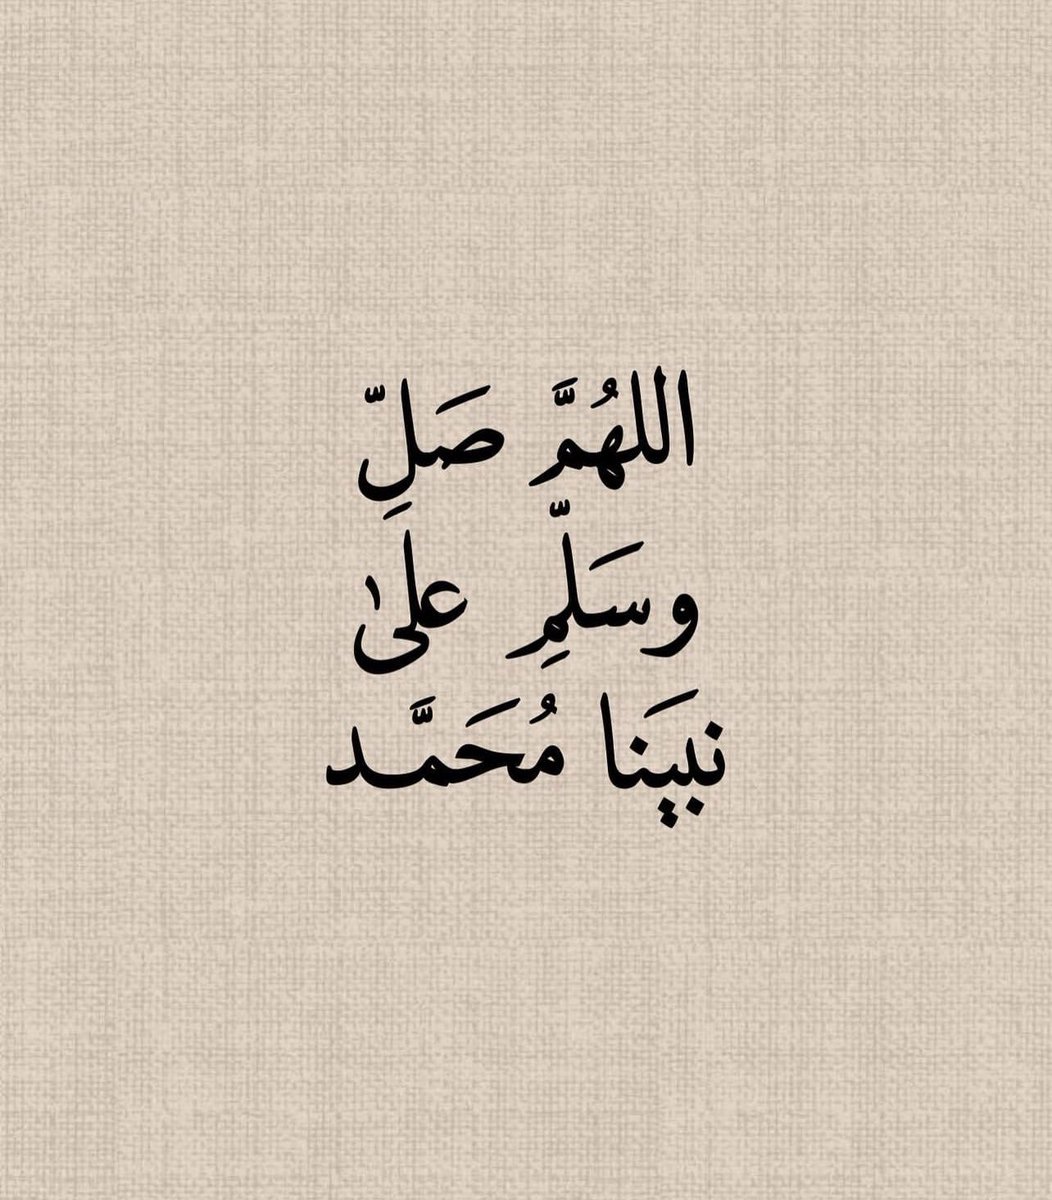 اللهُمَّ صَلِّ
وسَلِّمِ علىٰ
نبيَنا مُحَمَّد